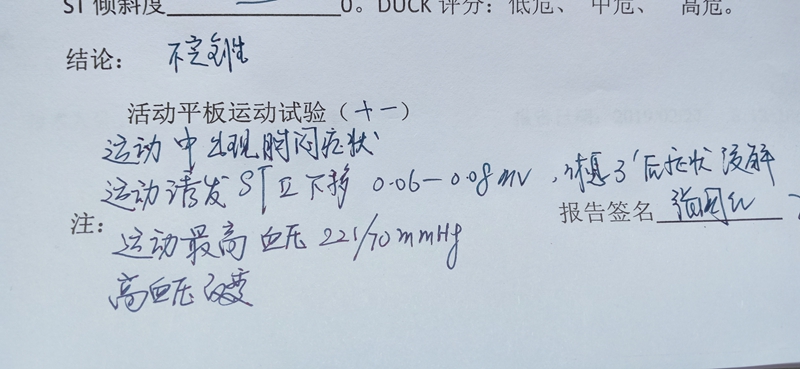 ST 倾斜度 0。DUCK 评分：低危、 中危、 高危。
结论： 不定到性
活动平板运动试验（十一）
运动中出现胸闷症状
运动诱发 ST II 下移 0.06—0.08mv，休息3'后症状缓解
报告签名
注：
运动最高血压 221/70mmHg
高血压